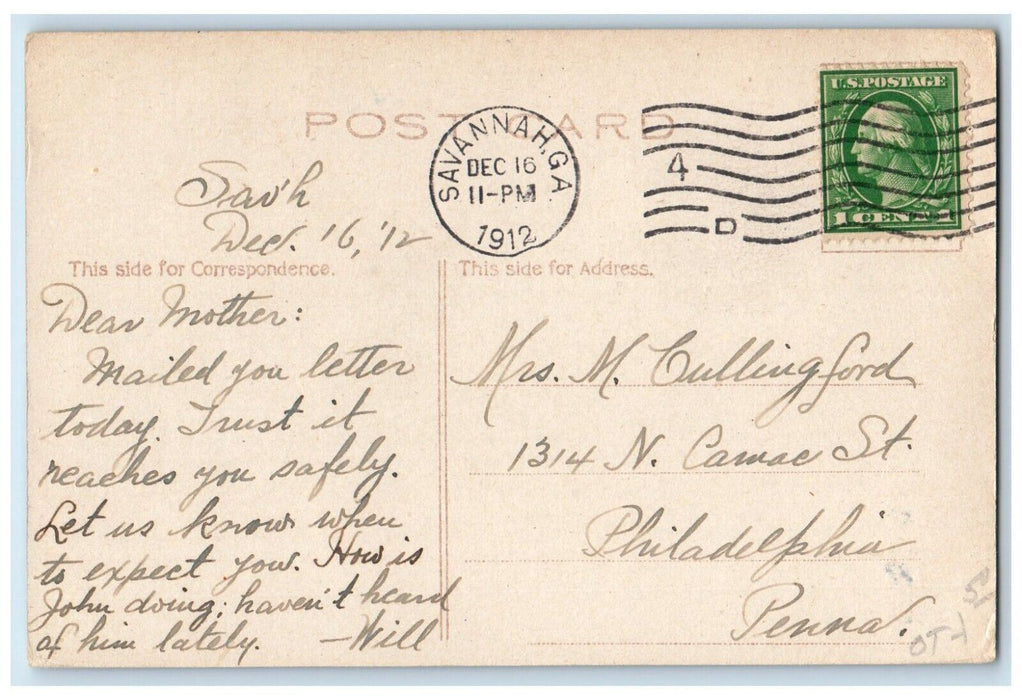 POST CARD
SAVANNAH, GA.
DEC 16
11-PM
1912
4
D
U.S.POSTAGE
1 CENT 1
Sav'h
Dec. 16, '12
This side for Correspondence.
This side for Address.
Dear Mother:
Mailed you letter
today. Trust it
reaches you safely.
Let us know when
to expect you. How is
John doing; haven't heard
of him lately. —Will
Mrs. M. Cullingford
1314 N. Camac St.
Philadelphia
Penna.